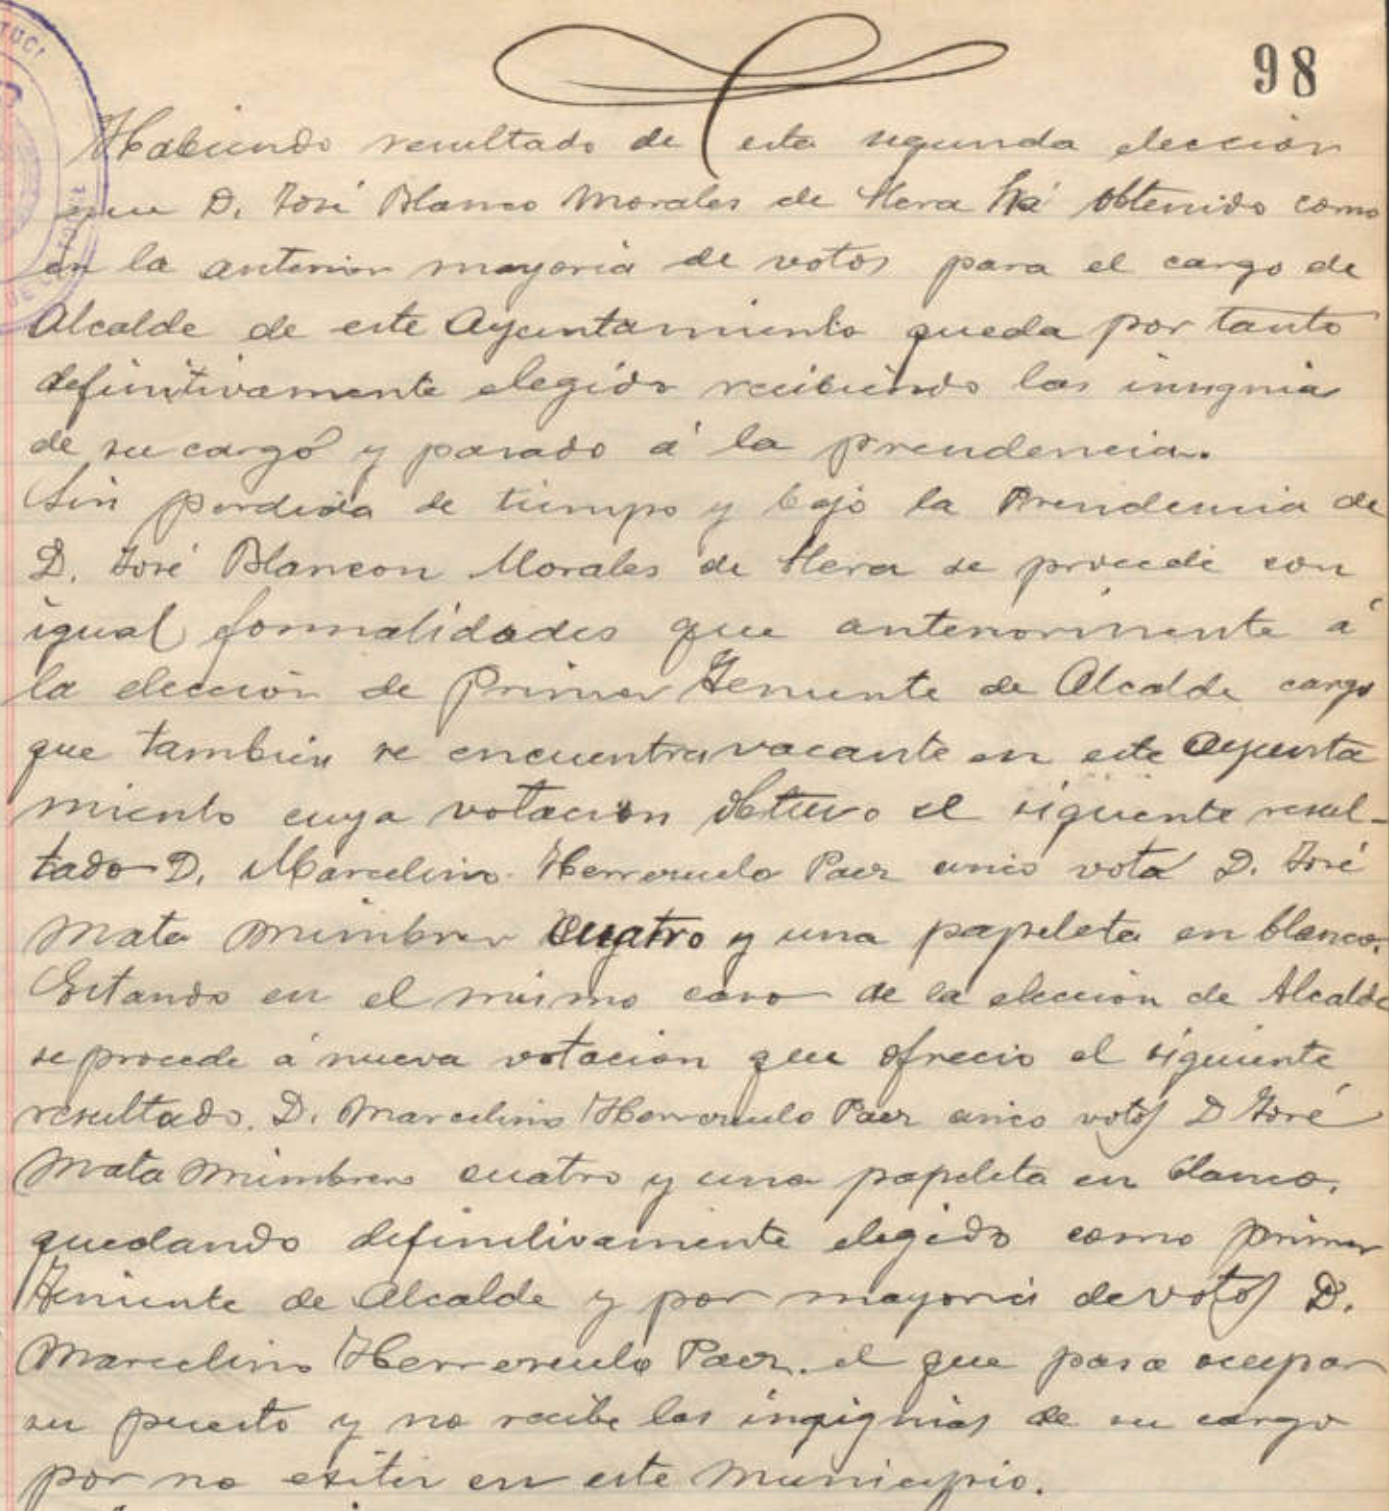 98
Habiendo resultado de esta segunda elección
que D. José Blanco Morales de Hera há obtenido como
en la anterior mayoría de votos para el cargo de
Alcalde de este Ayuntamiento queda por tanto
definitivamente elegido recibiendo las insignias
de su cargo y pasado á la presidencia.
Sin perdida de tiempo y bajo la Presidencia de
D. José Blancon Morales de Hera se procede con
igual formalidades que anteriormente á
la elección de Primer Teniente de Alcalde cargo
que tambien se encuentra vacante en este Ayunta
miento cuya votacion obtuvo el siguiente resul-
tado D. Marcelino Herreruelo Paez cinco vota D. José
Mata Mimbrer cuatro y una papeleta en blanco.
Estando en el mismo caso de la elección de Alcalde
se procede á nueva votacion que ofrecio el siguiente
resultado. D. Marcelino Herreruelo Paez cinco votos D José
Mata Mimbrero cuatro y una papeleta en blanco.
quedando definitivamente elegido como primer
Teniente de Alcalde y por mayoria de votos D.
Marcelino Herreruelo Paez. el que pasa ocupar
su puesto y no recibe las insignias de su cargo
por no exitir en este Municipio.